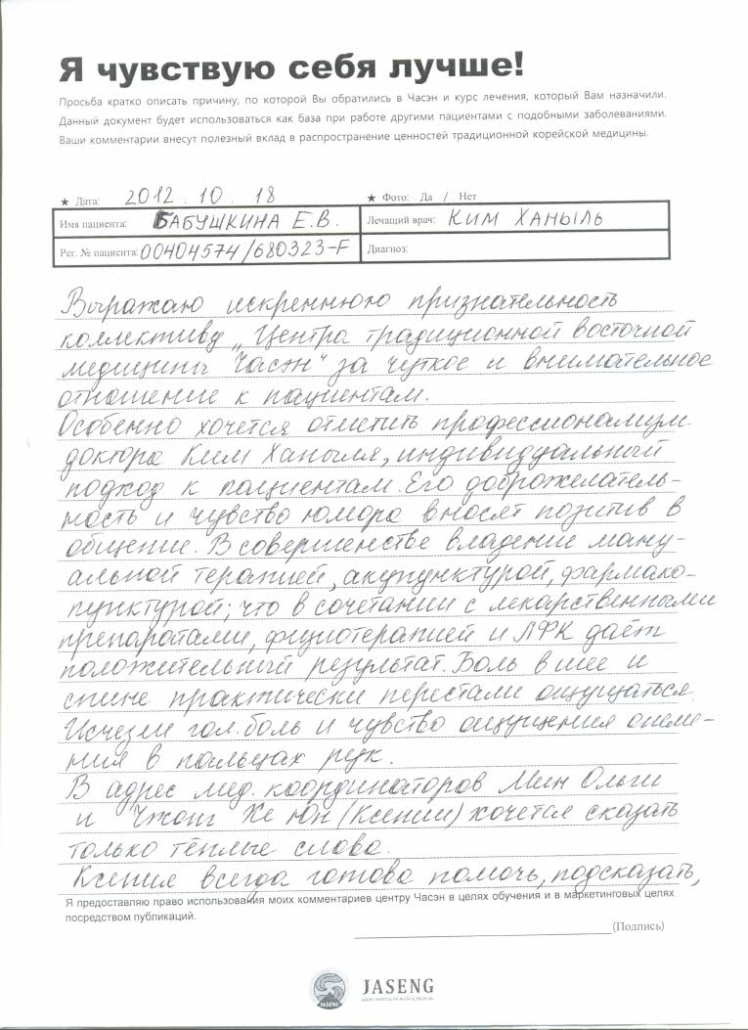 Я чувствую себя лучше!
Просьба кратко описать причину, по которой Вы обратились в Часэн и курс лечения, который Вам назначили.
Данный документ будет использоваться как база при работе другими пациентами с подобными заболеваниями.
Ваши комментарии внесут полезный вклад в распространение ценностей традиционной корейской медицины.
★ Дата: 2012. 10. 18 ★ Фото: Да / Нет
Имя пациента: БАБУШКИНА Е.В. Лечащий врач: КИМ ХАНЫЛЬ
Рег. № пациента: 00404574/680323-F Диагноз:
Выражаю искреннюю признательность
коллективу „Центра традиционной восточной
медицины Часэн" за чуткое и внимательное
отношение к пациентам.
Особенно хочется отметить профессионализм
доктора Ким Ханыля, индивидуальный
подход к пациентам. Его доброжелатель-
ность и чувство юмора вносят позитив в
общение. В совершенстве владение ману-
альной терапией, акупунктурой, фармако-
пунктурой; что в сочетании с лекарственными
препаратами, физиотерапией и ЛФК даёт
положительный результат. Боль в шее и
спине практически перестали ощущаться.
Исчезли гол. боль и чувство ощущения онеме-
ния в пальцах рук.
В адрес мед. координаторов Мин Ольги
и Чжонг Хе Юн (Ксении) хочется сказать
только тёплые слова.
Ксения всегда готова помочь, подсказать,
Я предоставляю право использования моих комментариев центру Часэн в целях обучения и в маркетинговых целях
посредством публикаций.
(Подпись)
JASENG